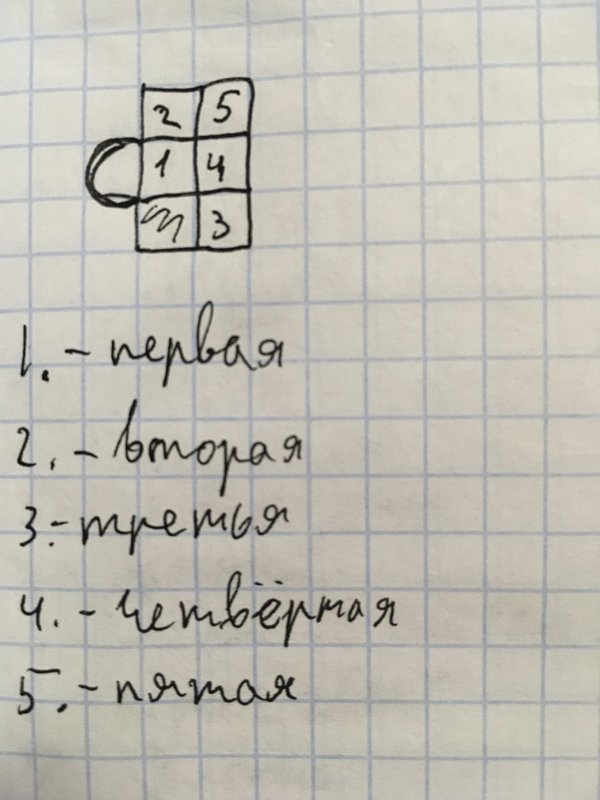 2 5
1 4
3
1. - первая
2. - вторая
3. - третья
4. - четвёртая
5. - пятая